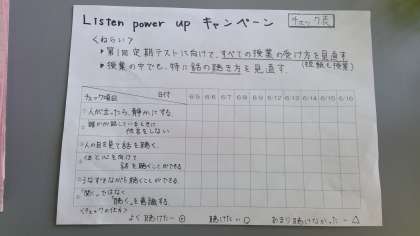 Listen power up キャンペーン
チェック表
<ねらい>
▶第1回定期テストに向けて、すべての授業の受け方を見直す
(短縮も授業)
▶授業の中でも、特に話の聴き方を見直す.
チェック項目 日付 6/5 6/6 6/7 6/8 6/9 6/12 6/13 6/14 6/15 6/16
人が立ったら、静かにする.
誰かが話しているときに
作業をしない
人の目を見て話を聴く.
体と心を向けて
話を聴くことができる
うなずきながら聴くことができる
"聞く"ではなく
"聴く"を意識する.
<チェックの仕方>
よく聴けた…◎ 聴けた…○ あまり聴けなかった…△